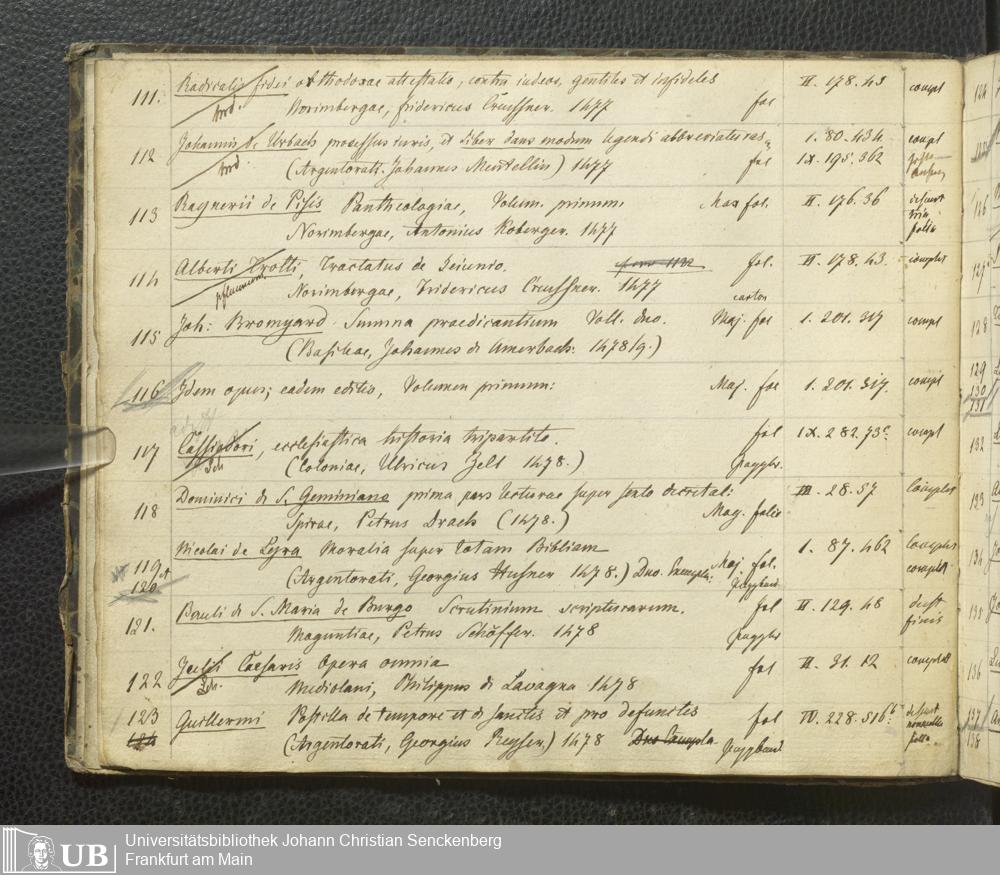 111. Radicalis fidei orthodoxae attestatio, contra iudeos, gentiles et infideles II. 178. 43 compl
Norimbergae, fridericus Creussner. 1477 fol
112 Johannis de Urbach processus iuris, et Liber dans modum legendi abbreviaturas, 1. 80. 434 compl
(Argentorati. Johannes Mentellin) 1477 fol IX. 195. 362
113 Raynerii de Pisis Pantheologiae, Volum. primum. Max fol. II. 176. 36 desunt
Norimbergae, Antonius Koberger. 1477 folia
114 Alberti Trotti, Tractatus de Jeiunio. fol. II. 178. 43. complet
Norimbergae, Fridericus Creussner. 1477
115 Joh: Bromyard Summa praedicantium Voll. duo. Maj. fol 1. 201. 317 compl
(Basileae, Johannes de Amerbach. 1478/9.)
116 Idem opus; eadem editio, Volumen primum: Maj. fol 1. 201. 317. compl
117 Cassiodori, ecclesiastica historia tripartita. fol IX. 282. 73c. compl
Sch (Coloniae, Ulricus Zell 1478.)
118 Dominici de S. Geminiano prima pars lecturae super sexto decretal: III. 28. 57 complet
Spirae, Petrus Drach (1478.) Maj. folio
Nicolai de Lyra Moralia super totam Bibliam 1. 87. 462 complet
119 et (Argentorati, Georgius Husner 1478.) Duo. Exempla: Maj. fol. complet
120 Pappband
121. Pauli de S. Maria de Burgo Scrutinium scripturarum. fol II. 129. 48 deest
Moguntiae, Petrus Schöffer. 1478 finis
122 Julii Caesaris Opera omnia fol II. 31. 12 complet
Sch. Mediolani, Philippus de Lavagna 1478
123 Guillermi Postilla de tempore et de sanctis et pro defunctis fol IV. 228. 516b. desunt
124 (Argentorati, Georgius Reyser.) 1478 Duo Exempla Pappband nonnulla
folia
UB Universitätsbibliothek Johann Christian Senckenberg
Frankfurt am Main